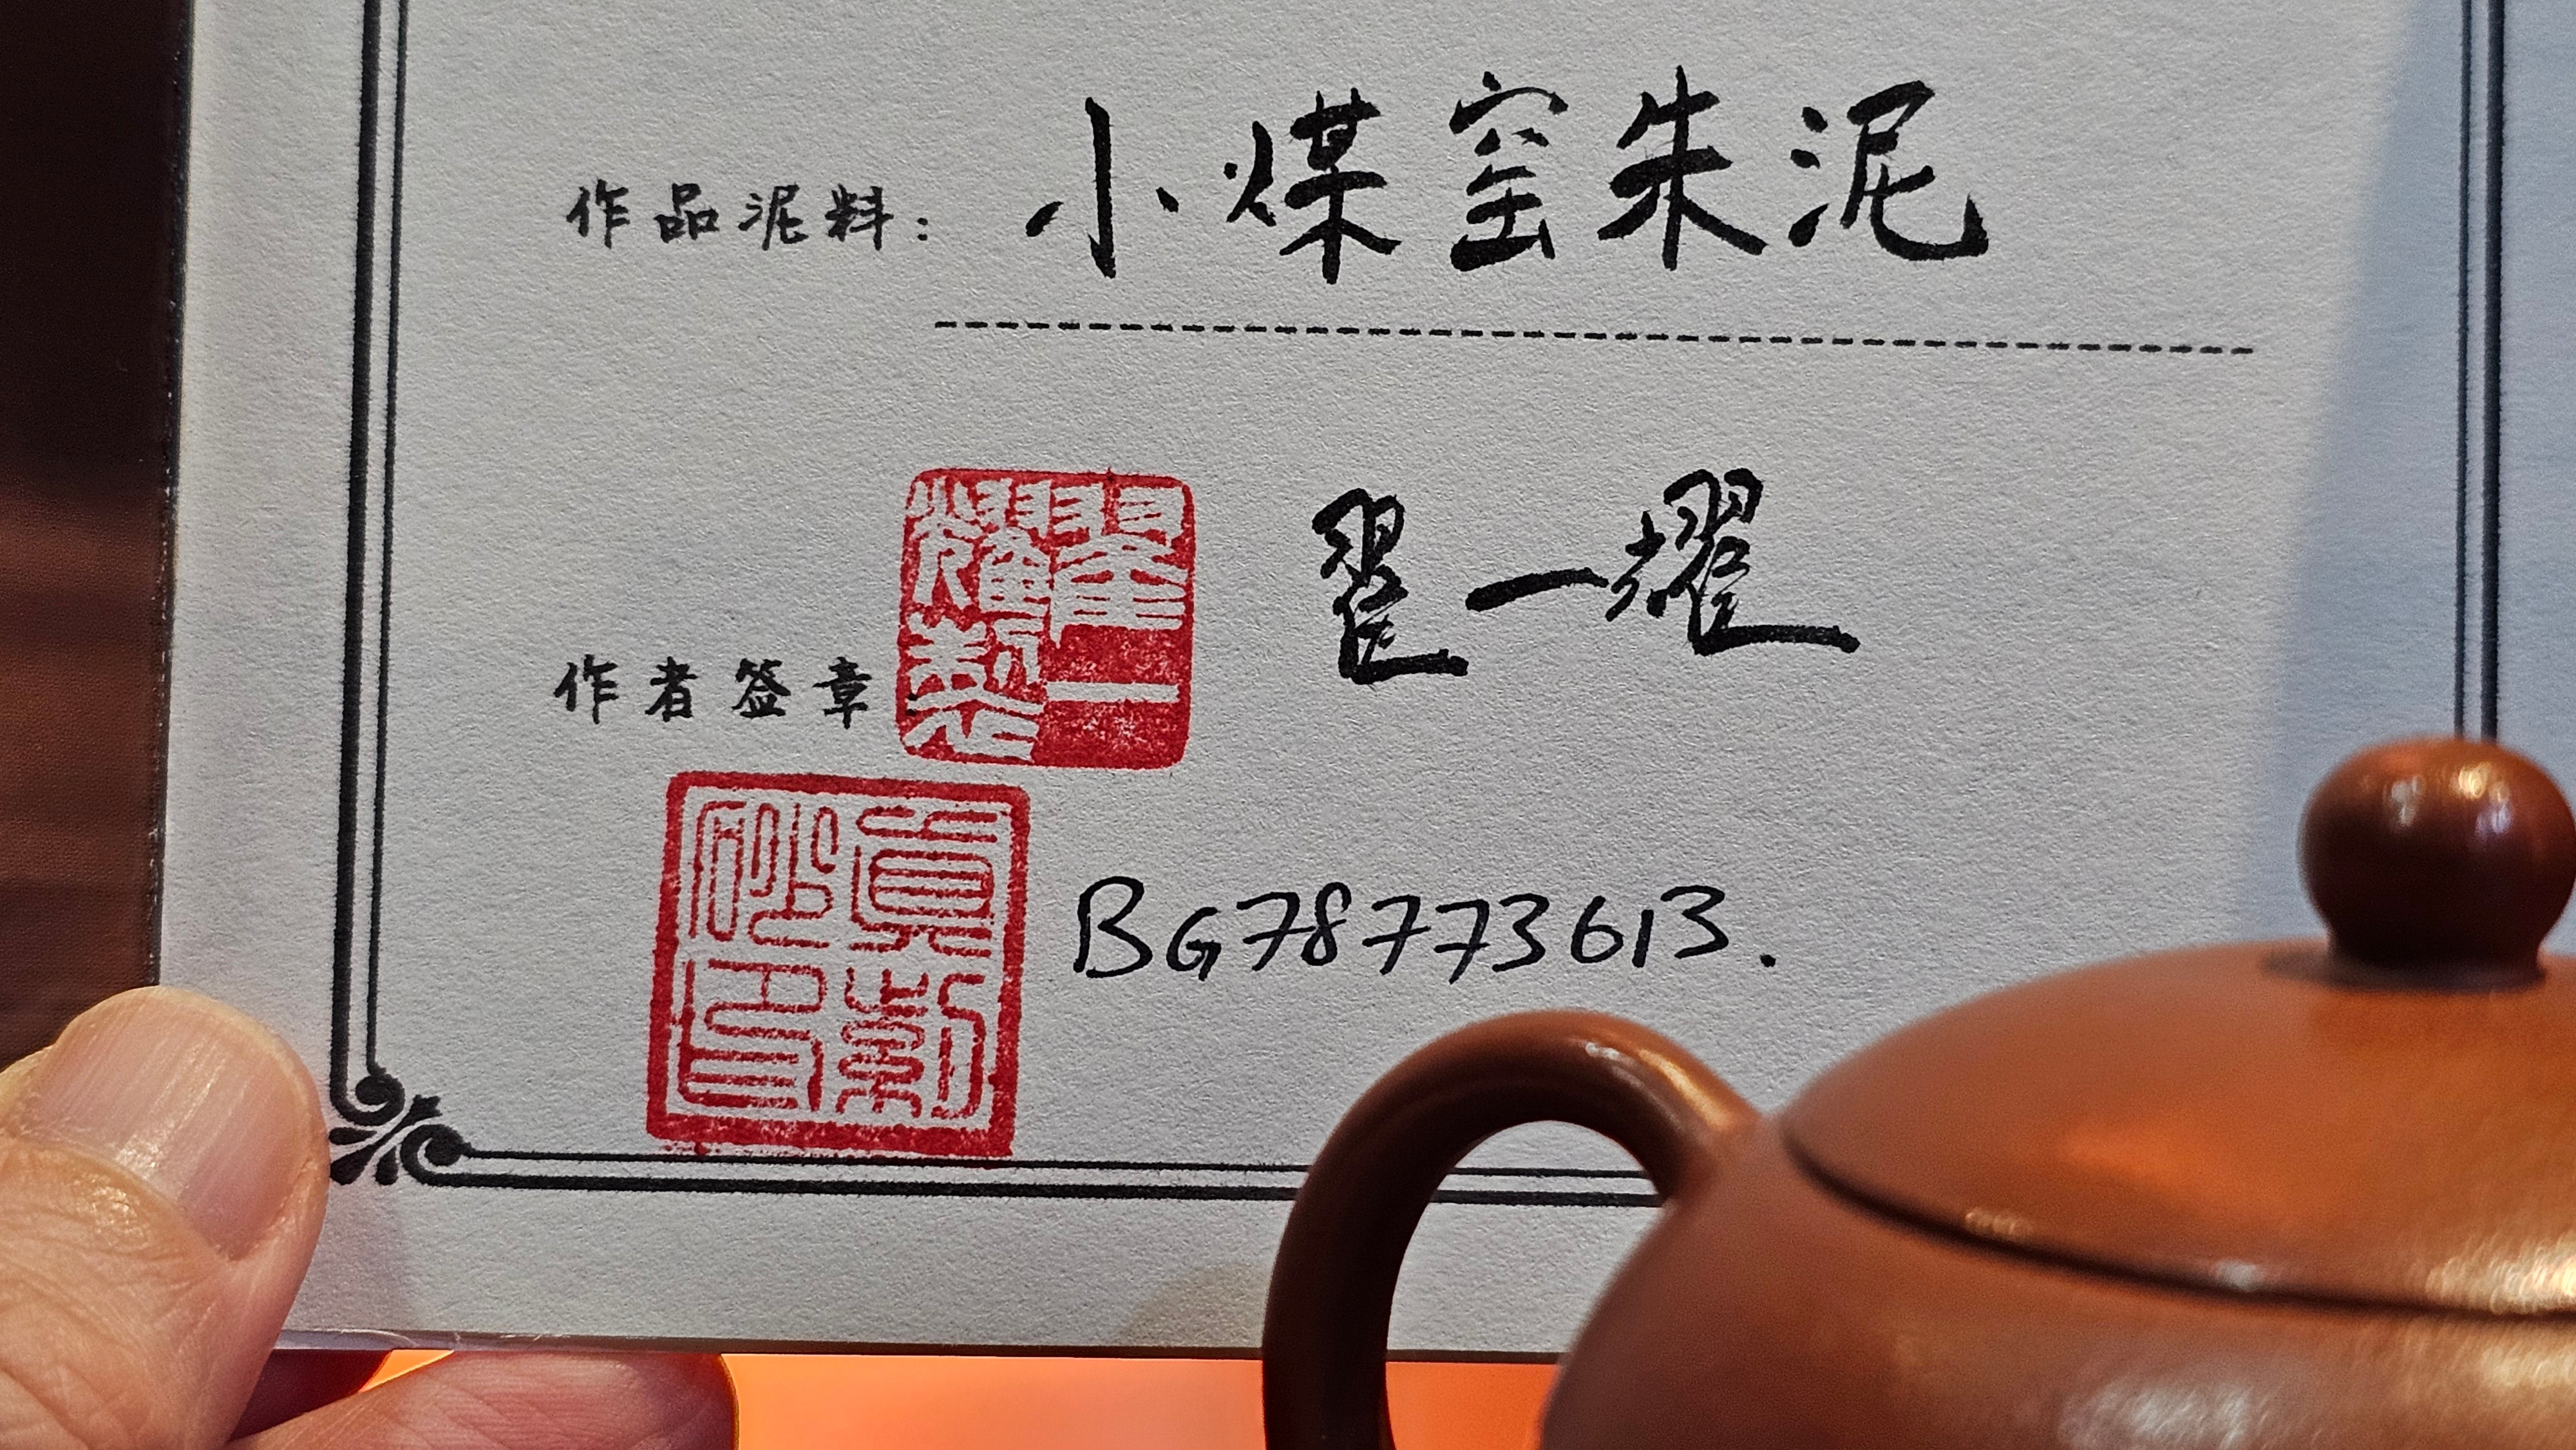 作品泥料：小煤窑朱泥
作者签章 翟一耀
翟一耀製
BG78773613.